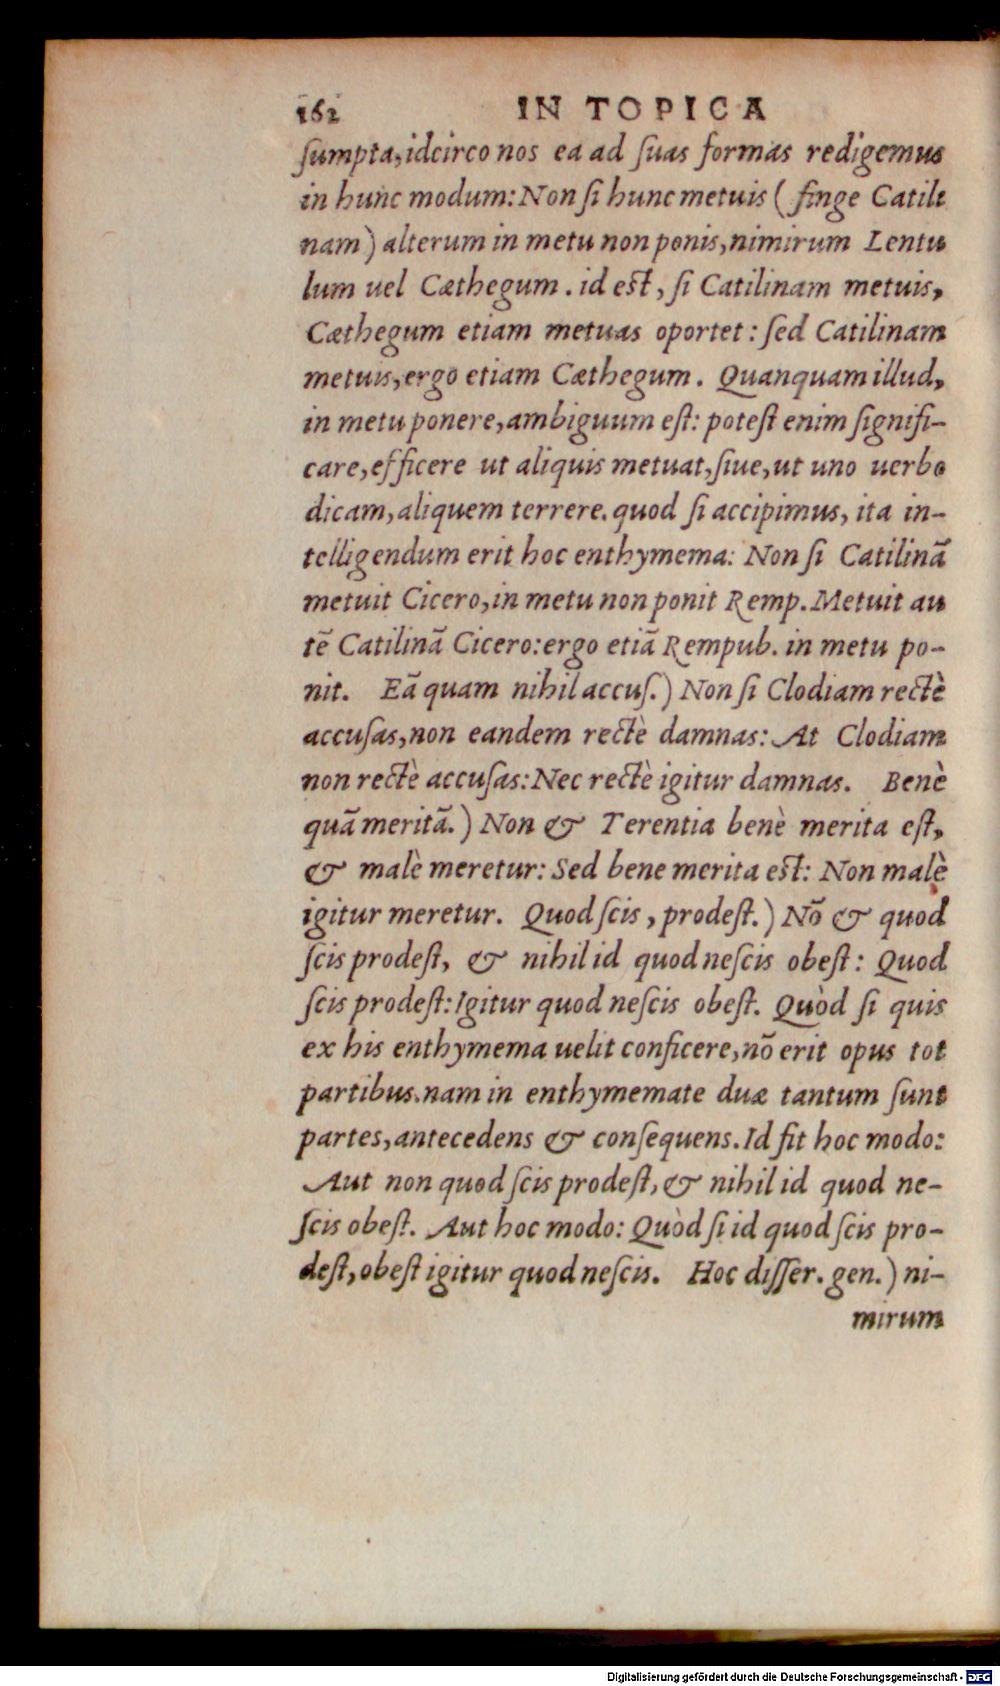 162 IN TOPICA
ſumpta, idcirco nos ea ad ſuas formas redigemus
in hunc modum: Non ſi hunc metuis ( finge Catili
nam) alterum in metu non ponis, nimirum Lentu
lum uel Cæthegum. id eſt, ſi Catilinam metuis,
Cæthegum etiam metuas oportet: ſed Catilinam
metuis, ergo etiam Cæthegum. Quanquam illud,
in metu ponere, ambiguum eſt: poteſt enim ſignifi-
care, efficere ut aliquis metuat, ſiue, ut uno uerbo
dicam, aliquem terrere. quod ſi accipimus, ita in-
telligendum erit hoc enthymema: Non ſi Catilinā
metuit Cicero, in metu non ponit Remp. Metuit au
tē Catilinā Cicero: ergo etiā Rempub. in metu po-
nit. Eā quam nihil accuſ.) Non ſi Clodiam rectè
accuſas, non eandem rectè damnas: At Clodiam
non rectè accuſas: Nec rectè igitur damnas. Benè
quā meritā.) Non & Terentia benè merita eſt,
& malè meretur: Sed bene merita eſt: Non malè
igitur meretur. Quod ſcis, prodeſt.) Nō & quod
ſcis prodeſt, & nihil id quod neſcis obeſt: Quod
ſcis prodeſt: Igitur quod neſcis obeſt. Quòd ſi quis
ex his enthymema uelit conficere, nō erit opus tot
partibus. nam in enthymemate duæ tantum ſunt
partes, antecedens & conſequens. Id fit hoc modo:
Aut non quod ſcis prodeſt, & nihil id quod ne-
ſcis obeſt. Aut hoc modo: Quòd ſi id quod ſcis pro-
deſt, obeſt igitur quod neſcis. Hoc diſſer. gen.) ni-
mirum
Digitalisierung gefördert durch die Deutsche Forschungsgemeinschaft - DFG